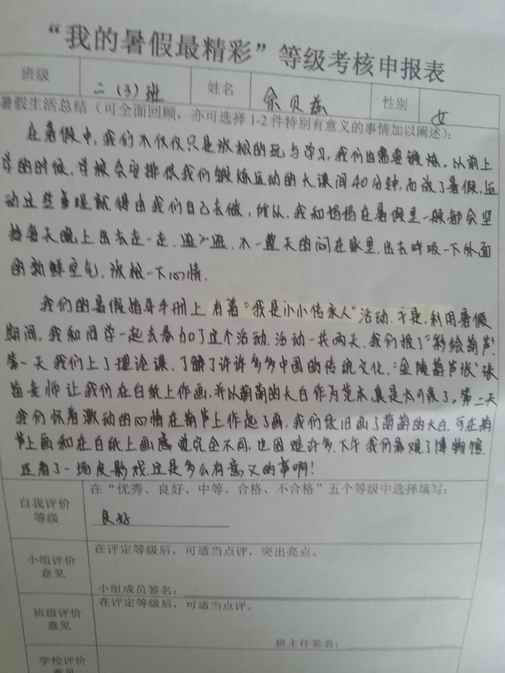 “我的暑假最精彩”等级考核申报表
班级 二(3)班 姓名 余贝 性别 女
暑假生活总结(可全面回顾，亦可选择1-2件特别有意义的事情加以阐述)：
在暑假中，我们不仅仅只是放松的玩与学习，我们也需要锻炼。以前上
学的时候，学校会安排供我们锻炼运动的大课间40分钟，而放了暑假，运
动这些事现就得由我们自己去做，所以，我和妈妈在暑假里一般都会坚
持每天晚上出去走一走，逛一逛，不一整天的闷在家里，出去呼吸一下外面
的新鲜空气，放松一下心情。
我们的暑假指导手册上有着“我是小小传承人”活动，于是，利用暑假
期间，我和同学一起去参加了这个活动。活动一共两天，我们报了“彩绘葫芦”。
第一天我们上了理论课，了解了许许多多中国的传统文化，“金陵葫芦张”张
老师让我们在白纸上作画，并以萌萌的大白作为范本，真是太可爱了。第二天
我们怀着激动的心情在葫芦上作起了画，我们依旧画了萌萌的大白，可在葫
芦上画和在白纸上画感觉完全不同，也困难许多。下午我们参观了博物馆
还看了一场皮影戏这是多么有意义的事啊！
自我评价
等级
在“优秀、良好、中等、合格、不合格”五个等级中选择填写：
良好
小组评价
意见
在评定等级后，可适当点评，突出亮点。
小组成员签名：
班级评价
意见
在评定等级后，可适当点评。
班主任签名：
学校评价
意见